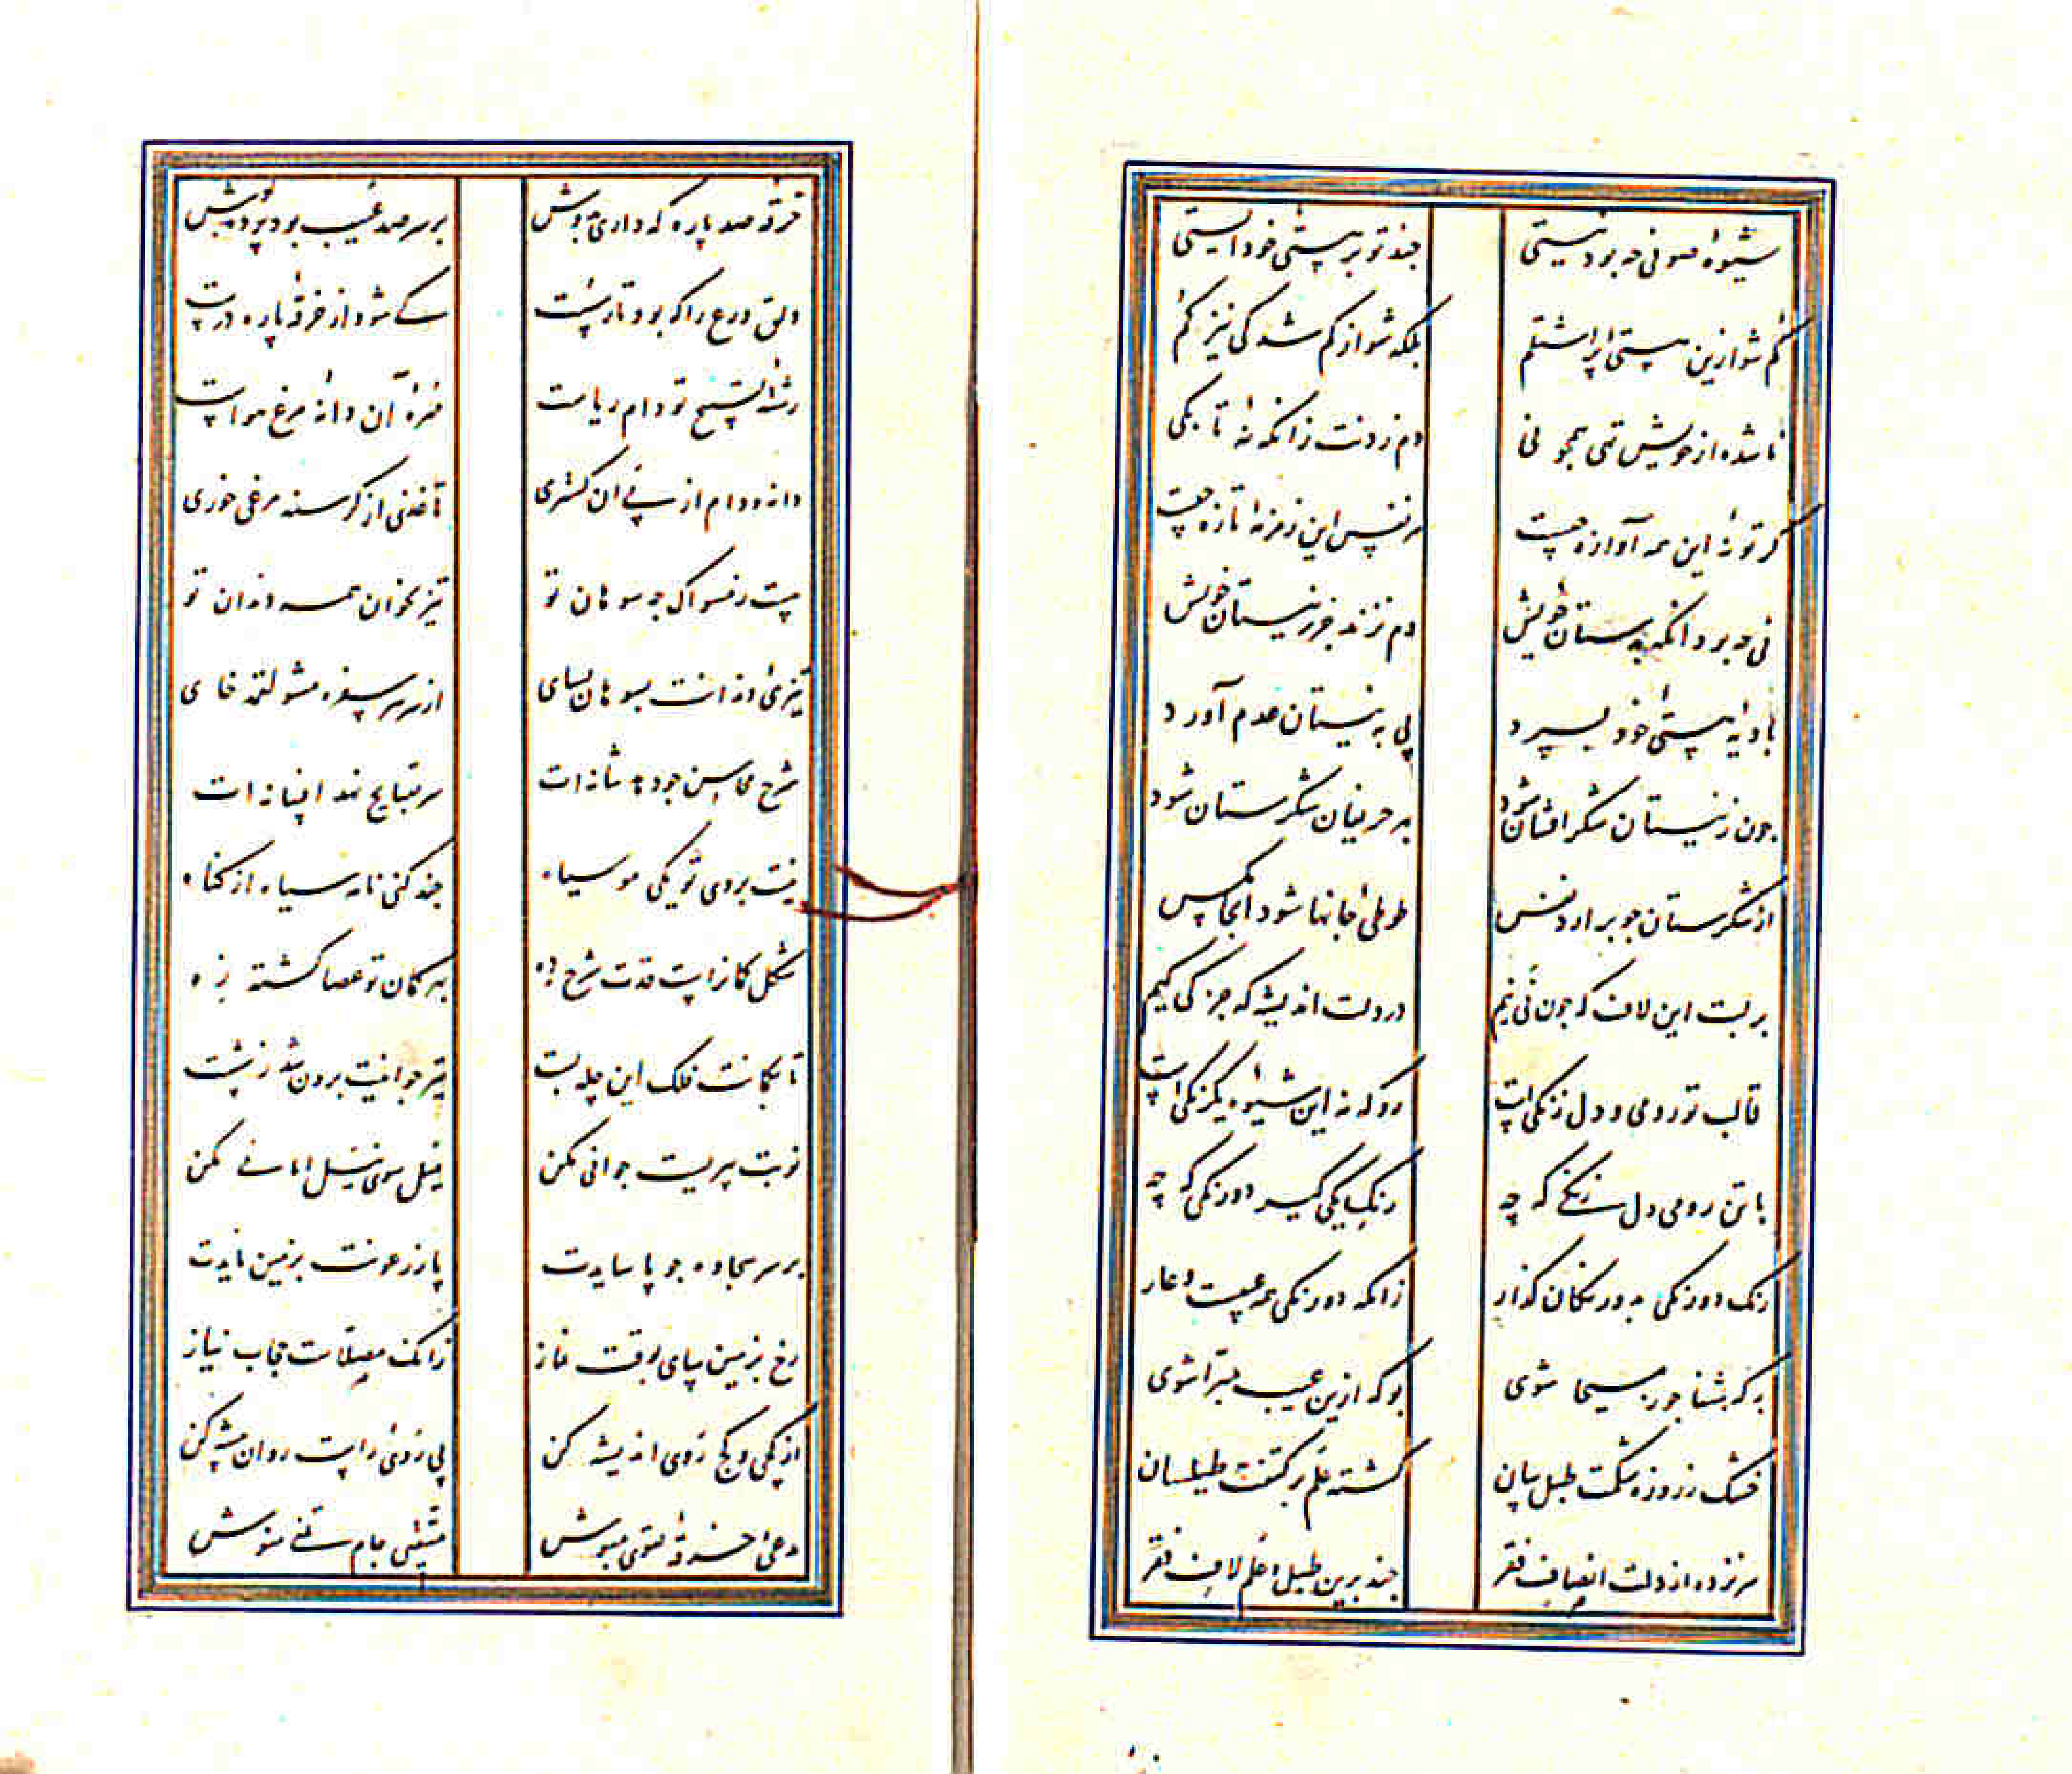 شیوهٔ صوفی چه بود نیستی چند تو بر هستی خود ایستی
کم شو ازین هستی پر اشتلم بلکه شو از کم شدکی نیز کم
ناشده از خویش تهی همچو نی دم زدنت زانکه نهٔ تا بکی
کر تو نهٔ این همه آوازه چیست هر نفس این زمزمهٔ تازه چیست
نی چه بود انکه بدستان خویش دم نزند جز ز نیستان خویش
بادیهٔ هستی خود بسپرد پی به نیستان عدم آورد
چون ز نیستان شکر افشان شود بهر حریفان شکرستان شود
از شکرستان چو برارد نفس طوطی جانها شود انجا مکس
بر لبت این لاف که چون نی نیم در دلت اندیشه که جز کی کیم
قالب تو رومی و دل زنکی است رو که نه این شیوهٔ یکرنکی است
با تن رومی دل زنکی که چه رنک یکی کیر دو رنکی که چه
رنک دو رنکی به دو رنکان کذار زانکه دو رنکی همه عیبست و عار
به که بشنا جور مسیحا شوی بو که ازین عیب مبرا شوی
خشک ز روزه شکمت طبل سان کشته علم بر کتفت طیلسان
سر نزده از دلت انصاف فقر چند برین طبل و علم لاف فقر
خرقهٔ صد پاره که داری بدوش بر سر صد عیب بود پرده پوش
دلق ورع را که بود تار سست کی شود از خرقهٔ پاره درست
رشتهٔ تسبیح تو دام ریاست مهرهٔ آن دانهٔ مرغ هواست
دانه و دام از پی ان کستری تا غذی از کرسنه مرغی خوری
هست ز مسواک چو سوهان تو تیز بخوان همه دندان تو
تیزی دندانت بسوهان بسای از سر هر سفره مشو لقمه خای
شرح محاسن چو دهد شانه ات سر بقبایح نهد افسانه ات
نیست بروی تو یکی مو سیاه چند کنی نامه سیاه از کناه
شکل کمانراست قدت شرح ده بهر کمان تو عصا کشته زه
تا بکمانت فلک این چله بست تیر جوانیت برون شد ز شست
نوبت پیریست جوانی مکن میل سوی نیل امانی مکن
بر سر سجاده چو پا سایدت پا ز رعونت بزمین نایدت
رخ بزمین سای بوقت نماز زانکه مصلاست حجاب نیاز
از کجی و کج روی اندیشه کن پی روی راست روان پیشه کن
مدعی خرقهٔ تقوی مپوش متقیی جام ستمی منوش